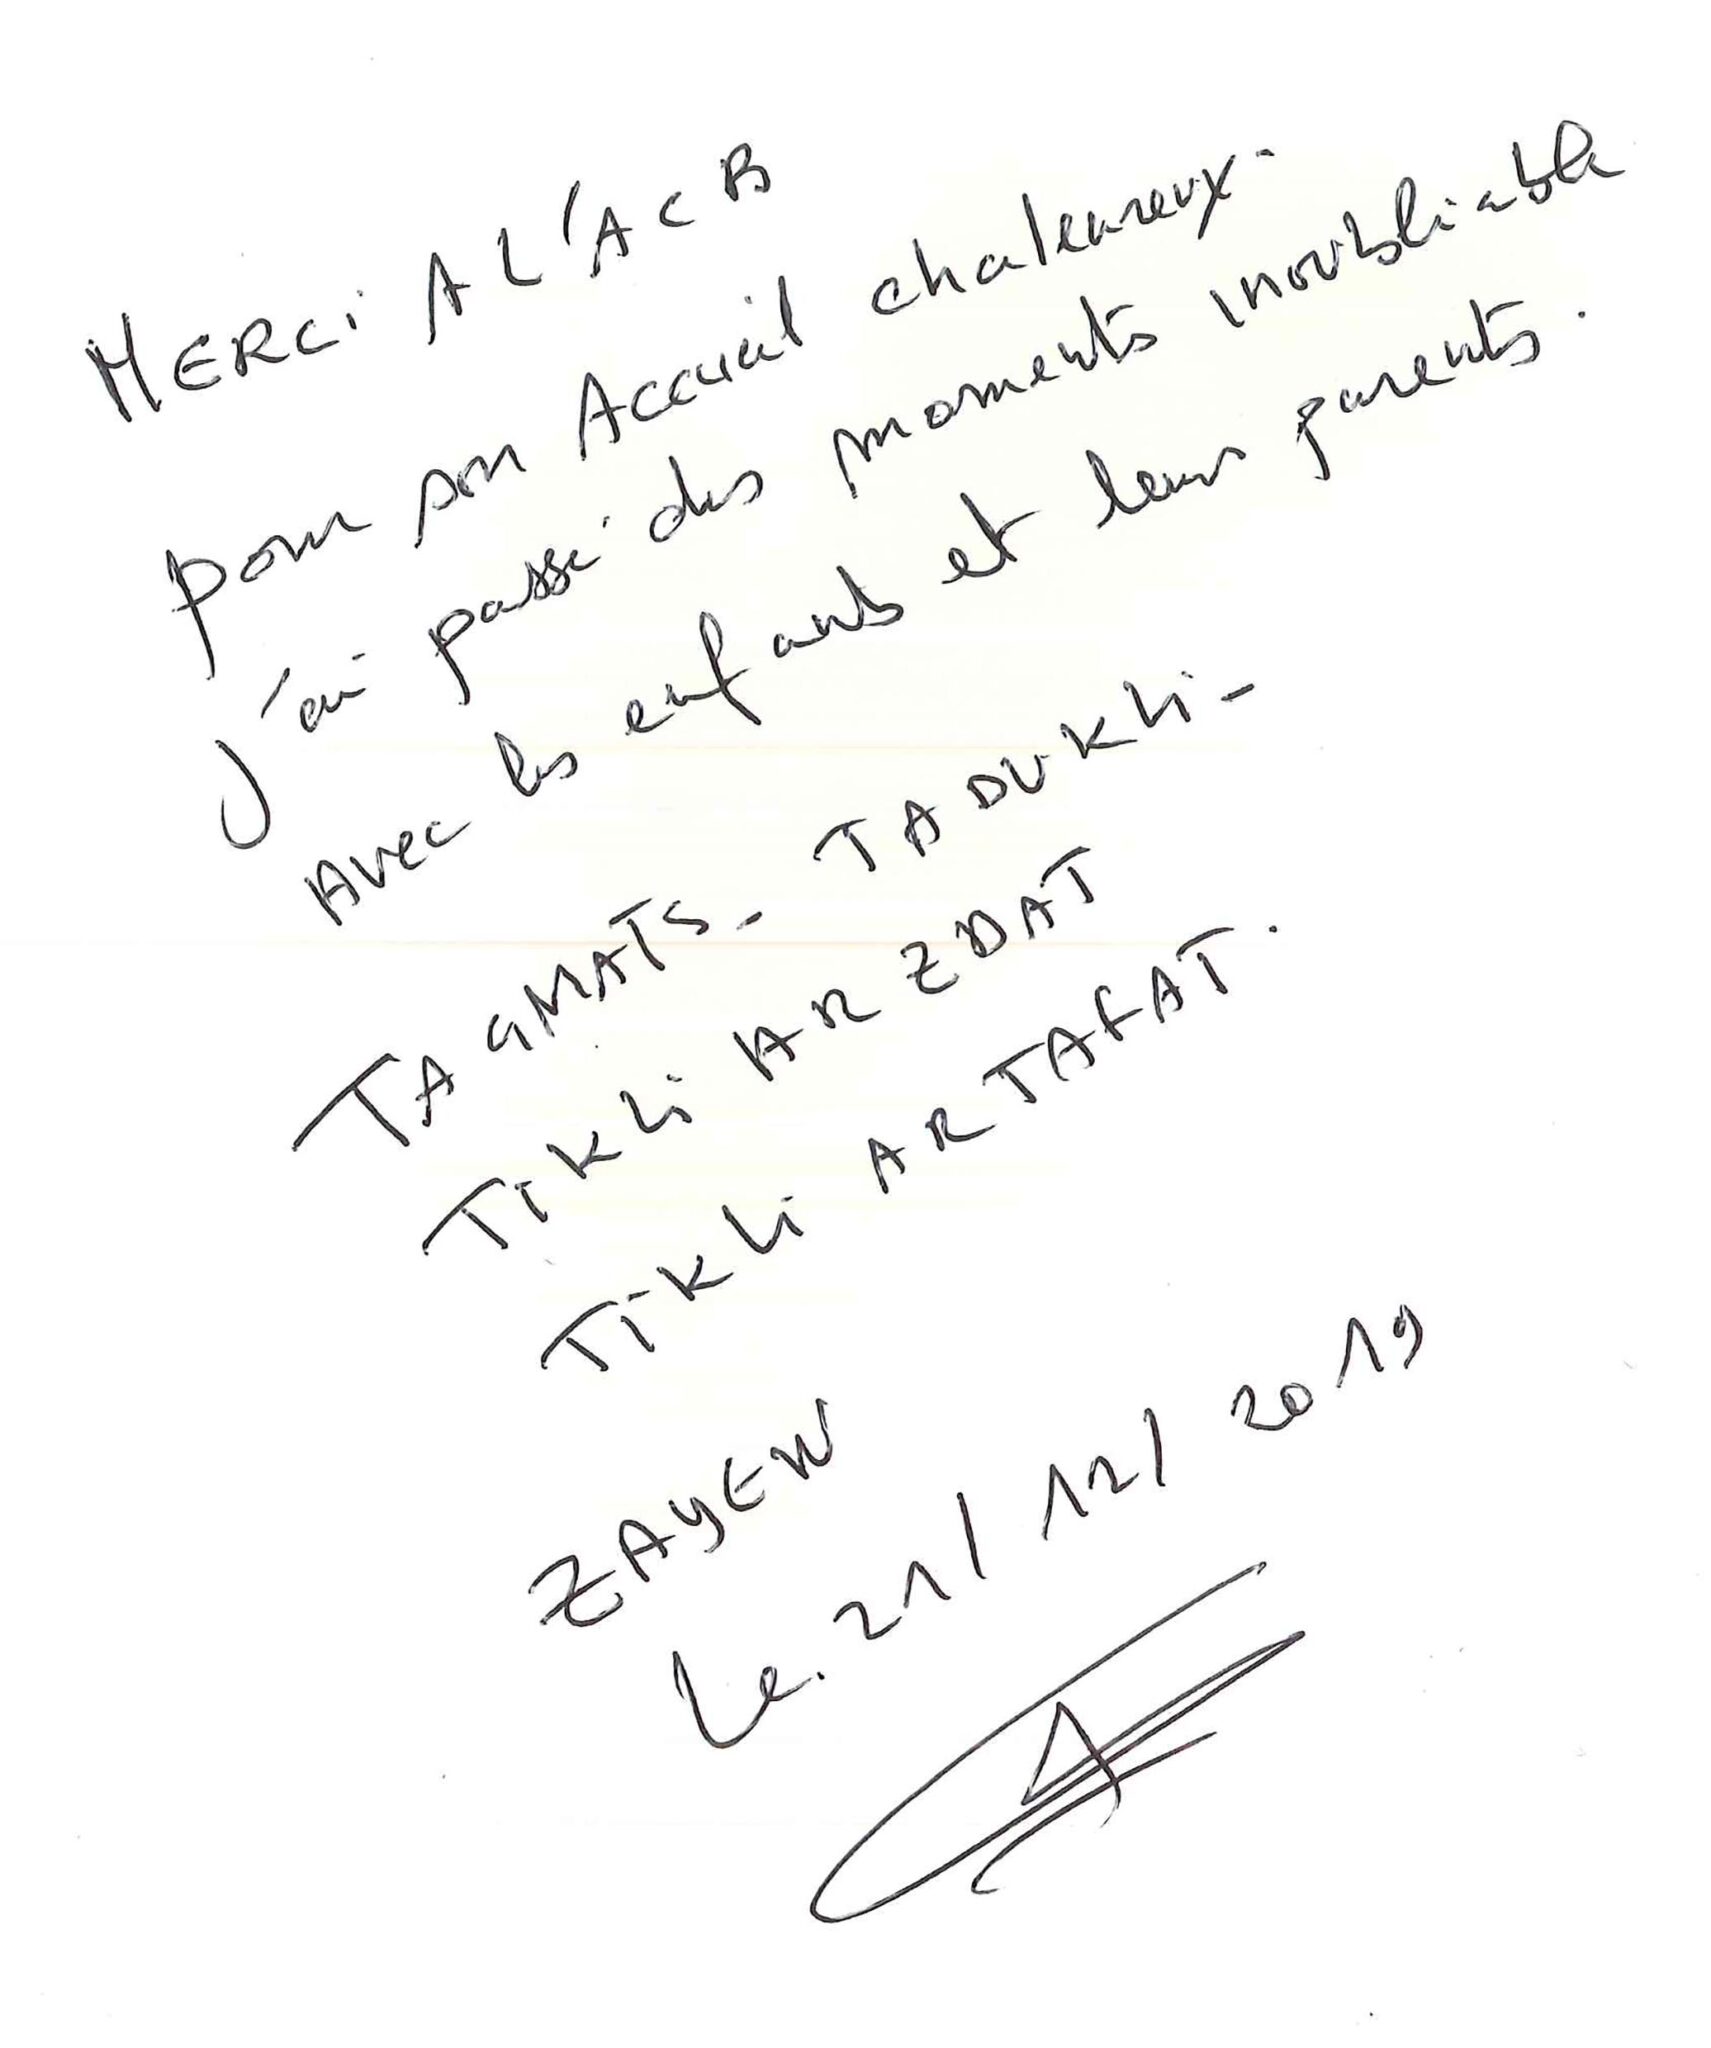 MERCi A L'ACB
pour son Accueil chaleureux-
J'ai passé des moments inoubliable
Avec les enfants et leurs parents.
TAGMATS- TADUKLi-
TiKLi AR ZDAT
TiKLi AR TAFAT.
ZAYEN
Le. 21/12/2019